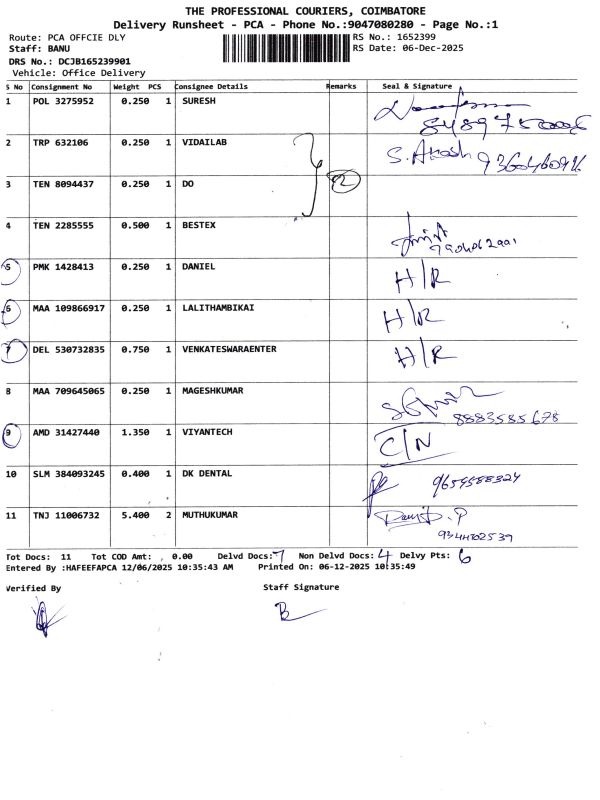 THE PROFESSIONAL COURIERS, COIMBATORE
Delivery Runsheet - PCA - Phone No.:9047080280 - Page No.:1
Route: PCA OFFCIE DLY RS No.: 1652399
Staff: BANU RS Date: 06-Dec-2025
DRS No.: DCJB165239901
Vehicle: Office Delivery
S No Consignment No Weight PCS Consignee Details Remarks Seal & Signature
1 POL 3275952 0.250 1 SURESH
2 TRP 632106 0.250 1 VIDAILAB S. Akash
3 TEN 8094437 0.250 1 DO 2
4 TEN 2285555 0.500 1 BESTEX
5 PMK 1428413 0.250 1 DANIEL H/R
6 MAA 109866917 0.250 1 LALITHAMBIKAI H/R
7 DEL 530732835 0.750 1 VENKATESWARAENTER H/R
8 MAA 709645065 0.250 1 MAGESHKUMAR 8883585678
9 AMD 31427440 1.350 1 VIYANTECH C/N
10 SLM 384093245 0.400 1 DK DENTAL
11 TNJ 11006732 5.400 2 MUTHUKUMAR
Tot Docs: 11 Tot COD Amt: 0.00 Delvd Docs: 7 Non Delvd Docs: 4 Delvy Pts: 6
Entered By :HAFEEFAPCA 12/06/2025 10:35:43 AM Printed On: 06-12-2025 10:35:49
Verified By Staff Signature
B